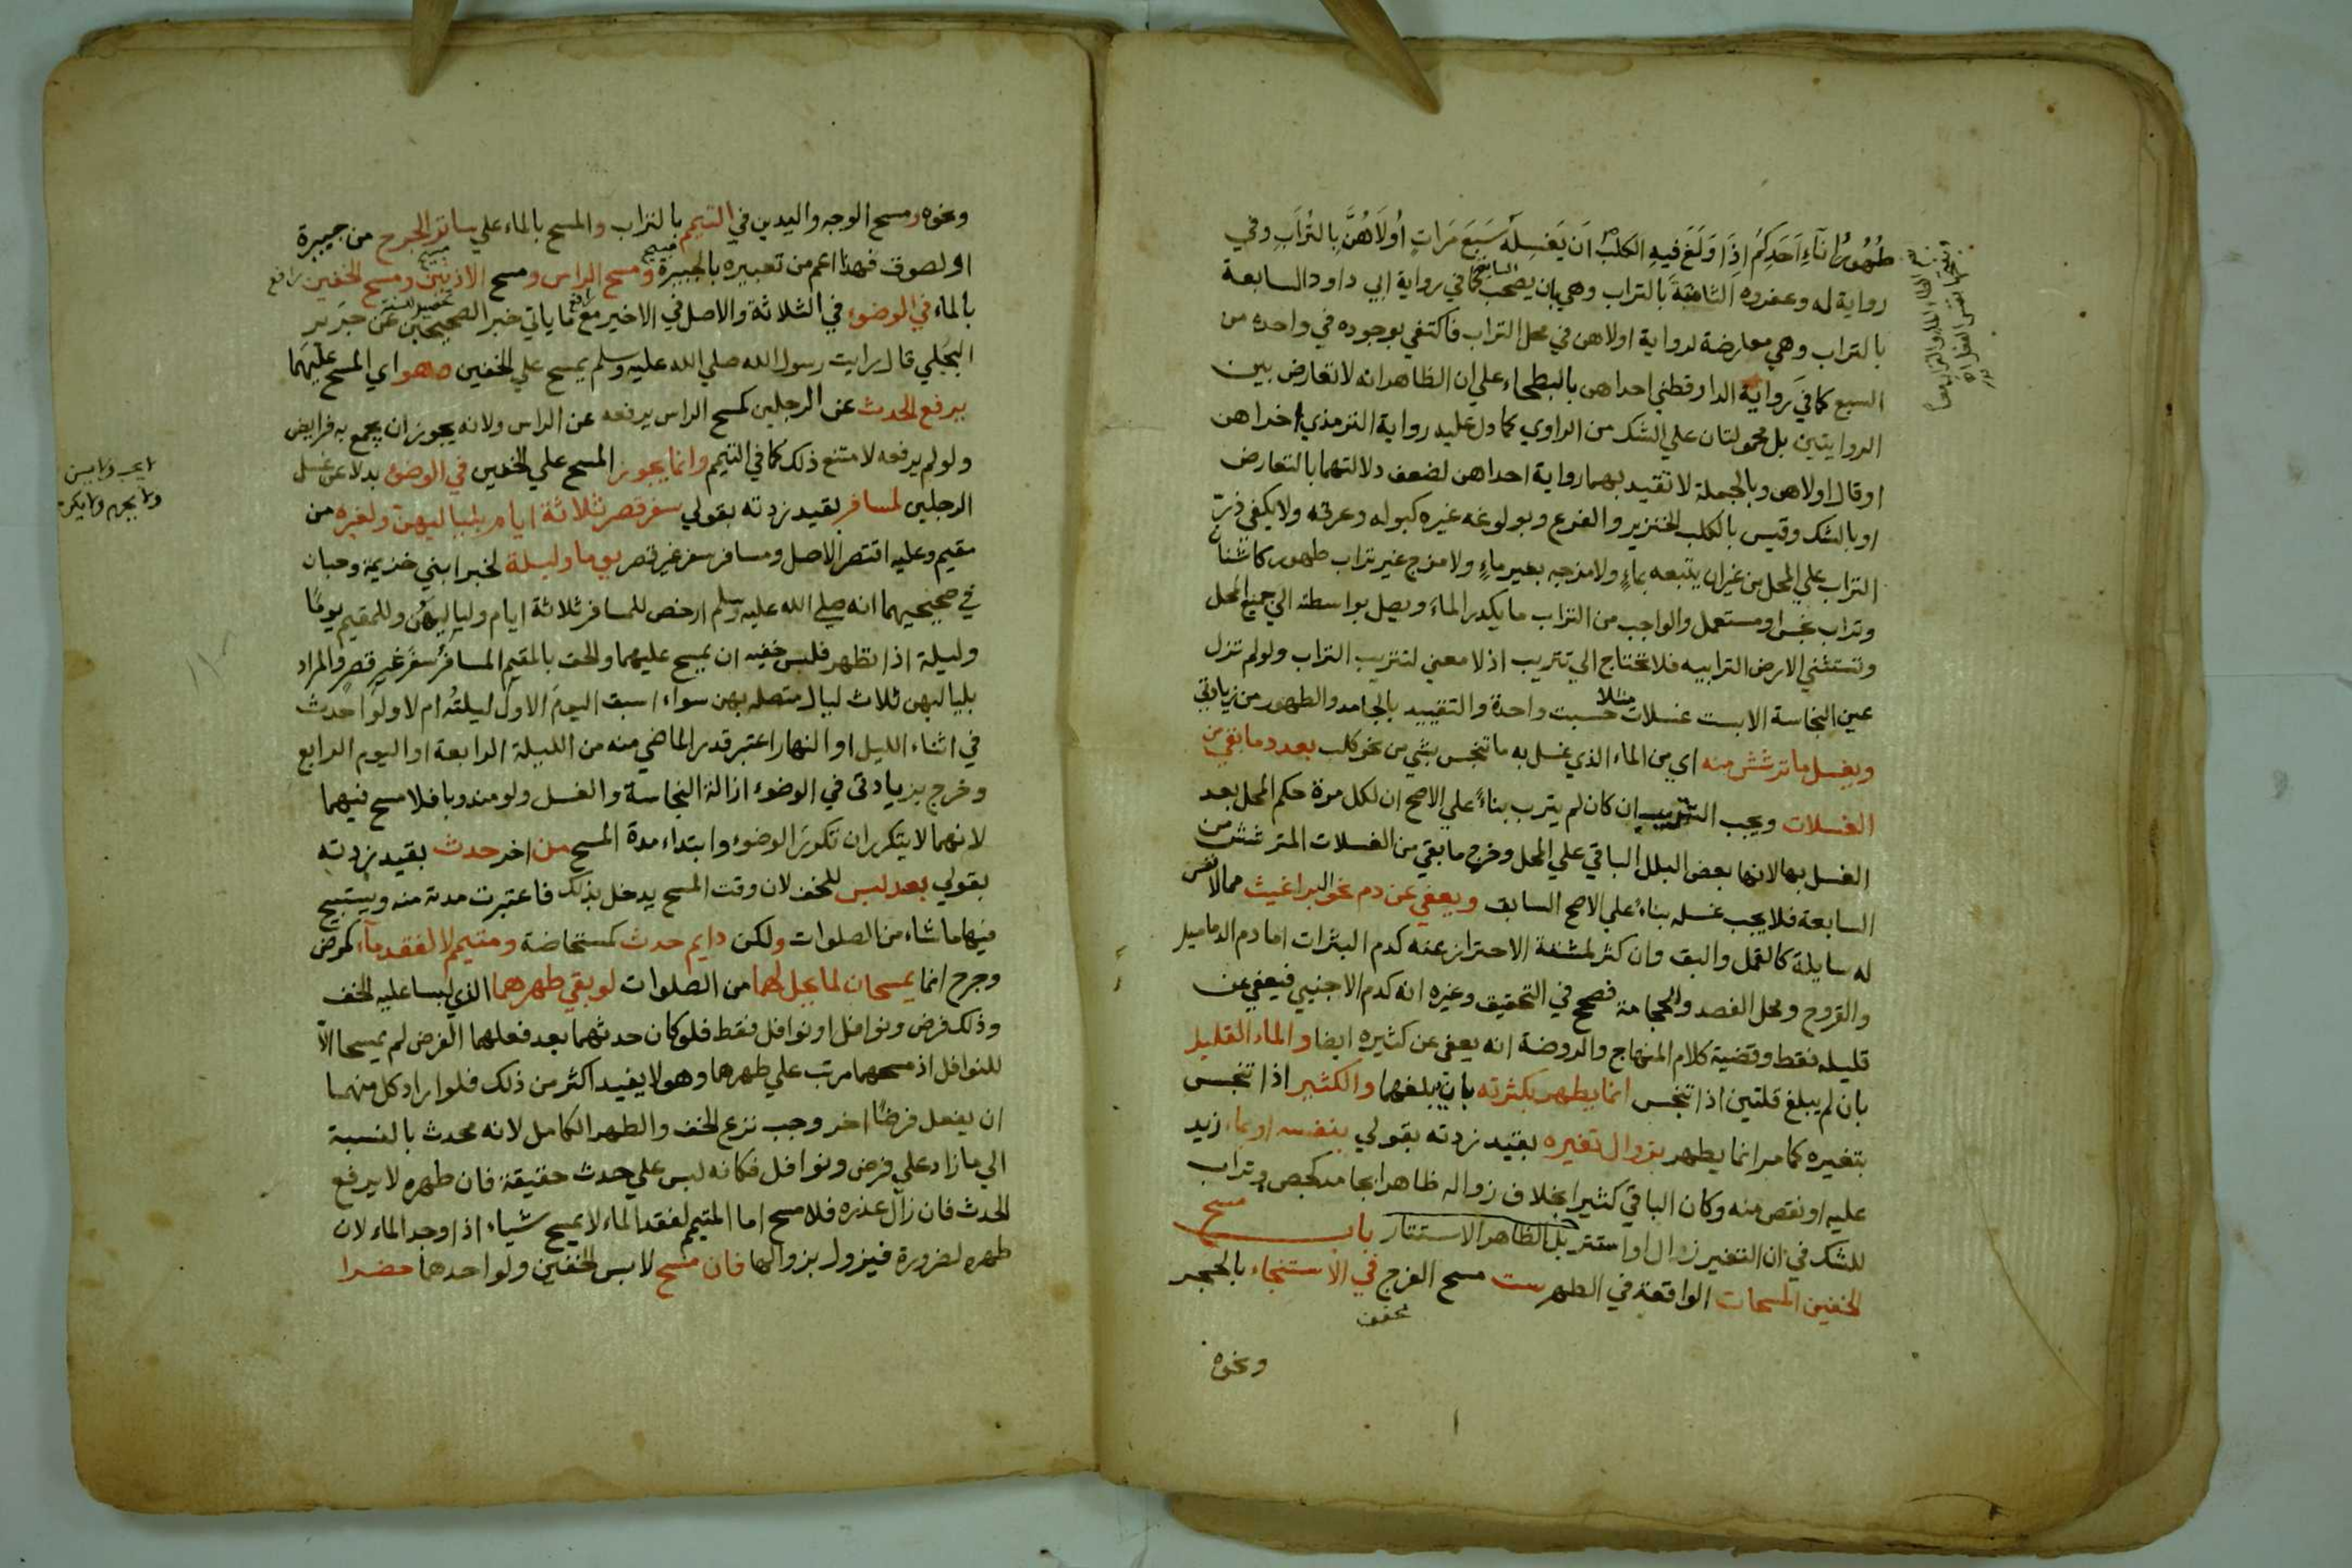 طُهُورُ اِنَآءِ اَحَدِكُمْ اِذَا وَلَغَ فيهِ الكلبُ اَن يَغسِلَه سَبَعَ مَرَاتٍ اُولَاهُنَّ بِالتُرَابِ وفي
رواية له وعفروه الثامنَةَ بالتراب وهي بان يصحب السابعة كما في رواية ابي داود السابعة
بالتراب وهي معارضة لرواية اولاهن في محل التراب فاكتفي بوجوده في واحدة من
السبع كما في رواية الدارقطني احداهن بالبطحاء علي ان الظاهر انه لا تعارض بين
الروايتين بل محمولتان علي الشك من الراوي كما دل عليه رواية الترمذي اخراهن
او قال اولاهن وبالجملة لا تقيد بهما رواية احداهن لضعف دلالتهما بالتعارض
او بالشك وقيس بالكلب الخنزير والفرع وبولوغه غيره كبوله وعرقه ولا يكفي ذرّ
التراب علي المحل من غير ان يتبعه بماءٍ ولا مزجه بغير ماءٍ ولا مزج غير تراب طهور كاشنان
وتراب نجس او مستعمل والواجب من التراب ما يكدر الماء ويصل بواسطته الي جميع المحل
وتستثني الارض الترابيه فلا تحتاج الي تتريب اذ لا معني لتتريب التراب ولو لم تزل
عين النجاسة الا بست غسلات مثلا حسبت واحدة والتقييد بالجامد والطهور من زيادتي
ويغسل ما ترشش منه اي من الماء الذي غسل به ما تنجس بشي من نحو كلب بعدد ما بقي من
الغسلات ويجب التتريب ان كان لم يترب بناءً علي الاصح ان لكل مرة حكم المحل بعد
الغسل بها لانها بعض البلل الباقي علي المحل وخرج ما بقي من الغسلات المترشش من
السابعة فلا يجب غسله بناءً علي الاصح السابق ويعفي عن دم نحو البراغيث مما لا نفس
له سايلة كالقمل والبق وان كثر لمشقة الاحتراز عنه كدم البثرات اما دم الدماميل
والقروح ومحل الفصد والحجامة فصحح في التحقيق وغيره انه كدم الاجنبي فيعفي عن
قليله فقط وقضية كلام المنهاج والروضة انه يعفي عن كثيره ايضا والماء القليل
بان لم يبلغ قلتين اذا تنجس انما يطهر بكثرته بان يبلغهما والكثير اذا تنجس
بتغيره كما مر انما يطهر بزوال تغيره بقيد زدته بقولي بنفسه او بماء زيد
عليه او نقص منه وكان الباقي كثيرا بخلاف زواله ظاهرا بجامد كجص وتراب
للشك في ان التغير زوال او استتر بل الظاهر الاستتار باب مسح
الخفين المسحات الواقعة في الطهر ست مسح الفرج في الاستنجاء بالحجر
مخفف
ونحوه
ونحوه ومسح الوجه واليدين في التيمم بالتراب والمسح بالماء علي ساتر الجرح من جبيرة
او لصوق فهذا اعم من تعبيره بالجبيرة ومسح الراس ومسح الاذنين ومسح الخفين
بالماء في الوضوء في الثلاثة والاصل في الاخير مع ما ياتي خبر الصحيحين عن جَرير
البجَلي قال رايت رسول الله صلي الله عليه وسلم يمسح علي الخفين وهو اي المسح عليهما
يرفع الحدث عن الرجلين كمسح الراس يرفعه عن الراس ولانه يجوز ان يجمع به فرايض
ولو لم يرفعه لامتنع ذلك كما في التيمم وانما يجوز المسح علي الخفين في الوضوء بدلا عن غسل
الرجلين لمسافر بقيد زدته بقولي سفر قصر ثلاثة ايام بلياليهن ولغيره من
مقيم وعليه اقتصر الاصل ومسافر سفر غير قصر يوما وليلة لخبر ابني خزيمة وحبان
في صحيحيهما انه صلي الله عليه وسلم ارخص للمسافر ثلاثة ايام ولياليهن وللمقيم يومًا
وليلة اذا تطهر فلبس خفيه ان يمسح عليهما والحق بالمقيم المسافر سفر غير قصر والمراد
بلياليهن ثلاث ليال متصلة بهن سواء اسبق اليوم الاول ليلتُه ام لا ولو احدث
في اثناء الليل او النهار اعتبر قدر الماضي منه من الليلة الرابعة او اليوم الرابع
وخرج بزيادتي في الوضوء ازالة النجاسة والغسل ولو مندوبا فلا مسح فيهما
لانهما لا يتكرران تكرر الوضوء وابتداء مدة المسح من اخر حدث بقيد زدته
بقولي بعد لبس للخف لان وقت المسح يدخل بذلك فاعتبرت مدته منه ويستبيح
فيها ما شاء من الصلوات ولكن دايم حدث كمستحاضة ومتيمم لا لفقد ماء كمرض
وجرح انما يمسحان لما يحل لهما من الصلوات لو بقي طهرهما الذي لبسا عليه الخف
وذلك فرض ونوافل او نوافل فقط فلو كان حدثهما بعد فعلهما الفرض لم يمسحا الا
للنوافل اذ مسحهما مرتب علي طهرهما وهو لا يفيد اكثر من ذلك فلو اراد كل منهما
ان يفعل فرضًا اخر وجب نزع الخف والطهر الكامل لانه محدث بالنسبة
الي ما زاد علي فرض ونوافل فكانه لبس علي حدث حقيقة فان طهره لا يرفع
الحدث فان زال عذره فلا مسح اما المتيمم لفقد الماء لا يمسح شياء اذا وجد الماء لان
طهره لضرورة فيزول بزوالها فان مسح لابس الخفين ولو احدهما حضرا